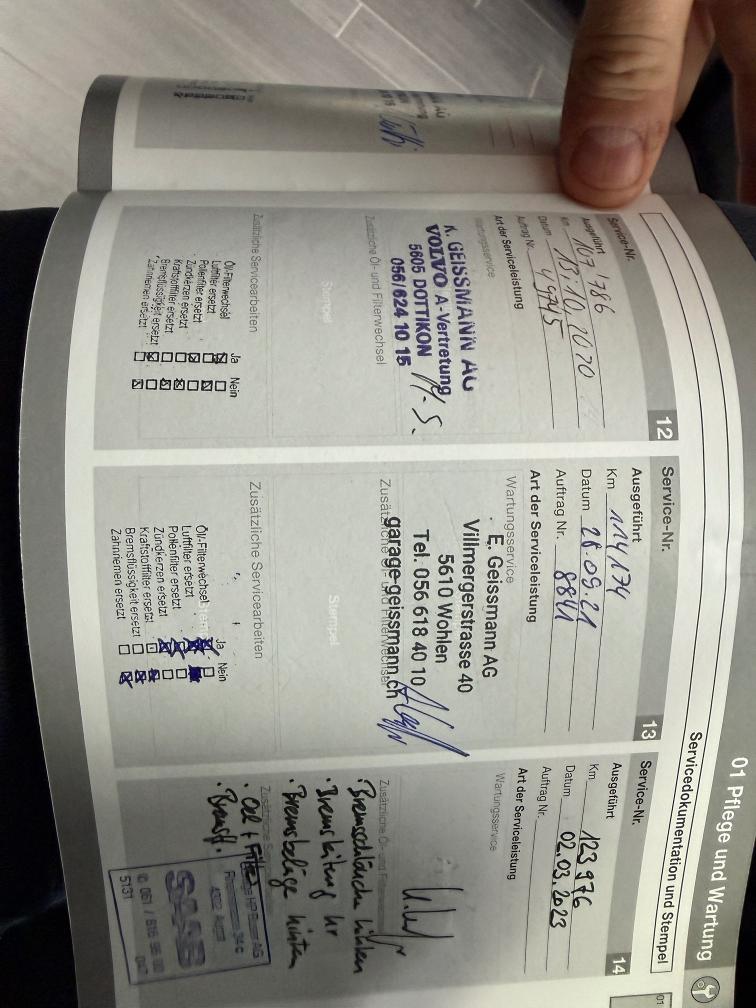 01 Pflege und Wartung
Servicedokumentation und Stempel
01
Service-Nr.
12
Ausgeführt
Km 107 786
Datum 13.10.2020
Auftrag Nr. 49745
Art der Serviceleistung
Wartungsservice
K. GEISSMANN AG
VOLVO A-Vertretung
5605 DOTTIKON
056/624 10 15
Zusätzliche Öl- und Filterwechsel
Stempel
Zusätzliche Servicearbeiten
Ja Nein
Öl-Filterwechsel
Luftfilter ersetzt
Pollenfilter ersetzt
Zündkerzen ersetzt
Kraftstofffilter ersetzt
Bremsflüssigkeit ersetzt
Zahnriemen ersetzt
Service-Nr.
13
Ausgeführt
Km 114174
Datum 28.09.21
Auftrag Nr. 8841
Art der Serviceleistung
Wartungsservice
E. Geissmann AG
Villmergerstrasse 40
5610 Wohlen
Tel. 056 618 40 10
Zusätzliche Öl- und Filterwechsel
garage-geissmann.ch
Stempel
Zusätzliche Servicearbeiten
Ja Nein
Öl-Filterwechsel
Luftfilter ersetzt
Pollenfilter ersetzt
Zündkerzen ersetzt
Kraftstofffilter ersetzt
Bremsflüssigkeit ersetzt
Zahnriemen ersetzt
Service-Nr.
14
Ausgeführt
Km 123 976
Datum 02.03.2023
Auftrag Nr.
Art der Serviceleistung
Wartungsservice
Zusätzliche Öl- und Filter
· Bremsschläuche hinten
· Bremsleitung hr
· Bremsbeläge hinten
Zusätzliche Se
· Oel + Filter
· Bremsfl.
AG
34c
SAAB
061 /
5131